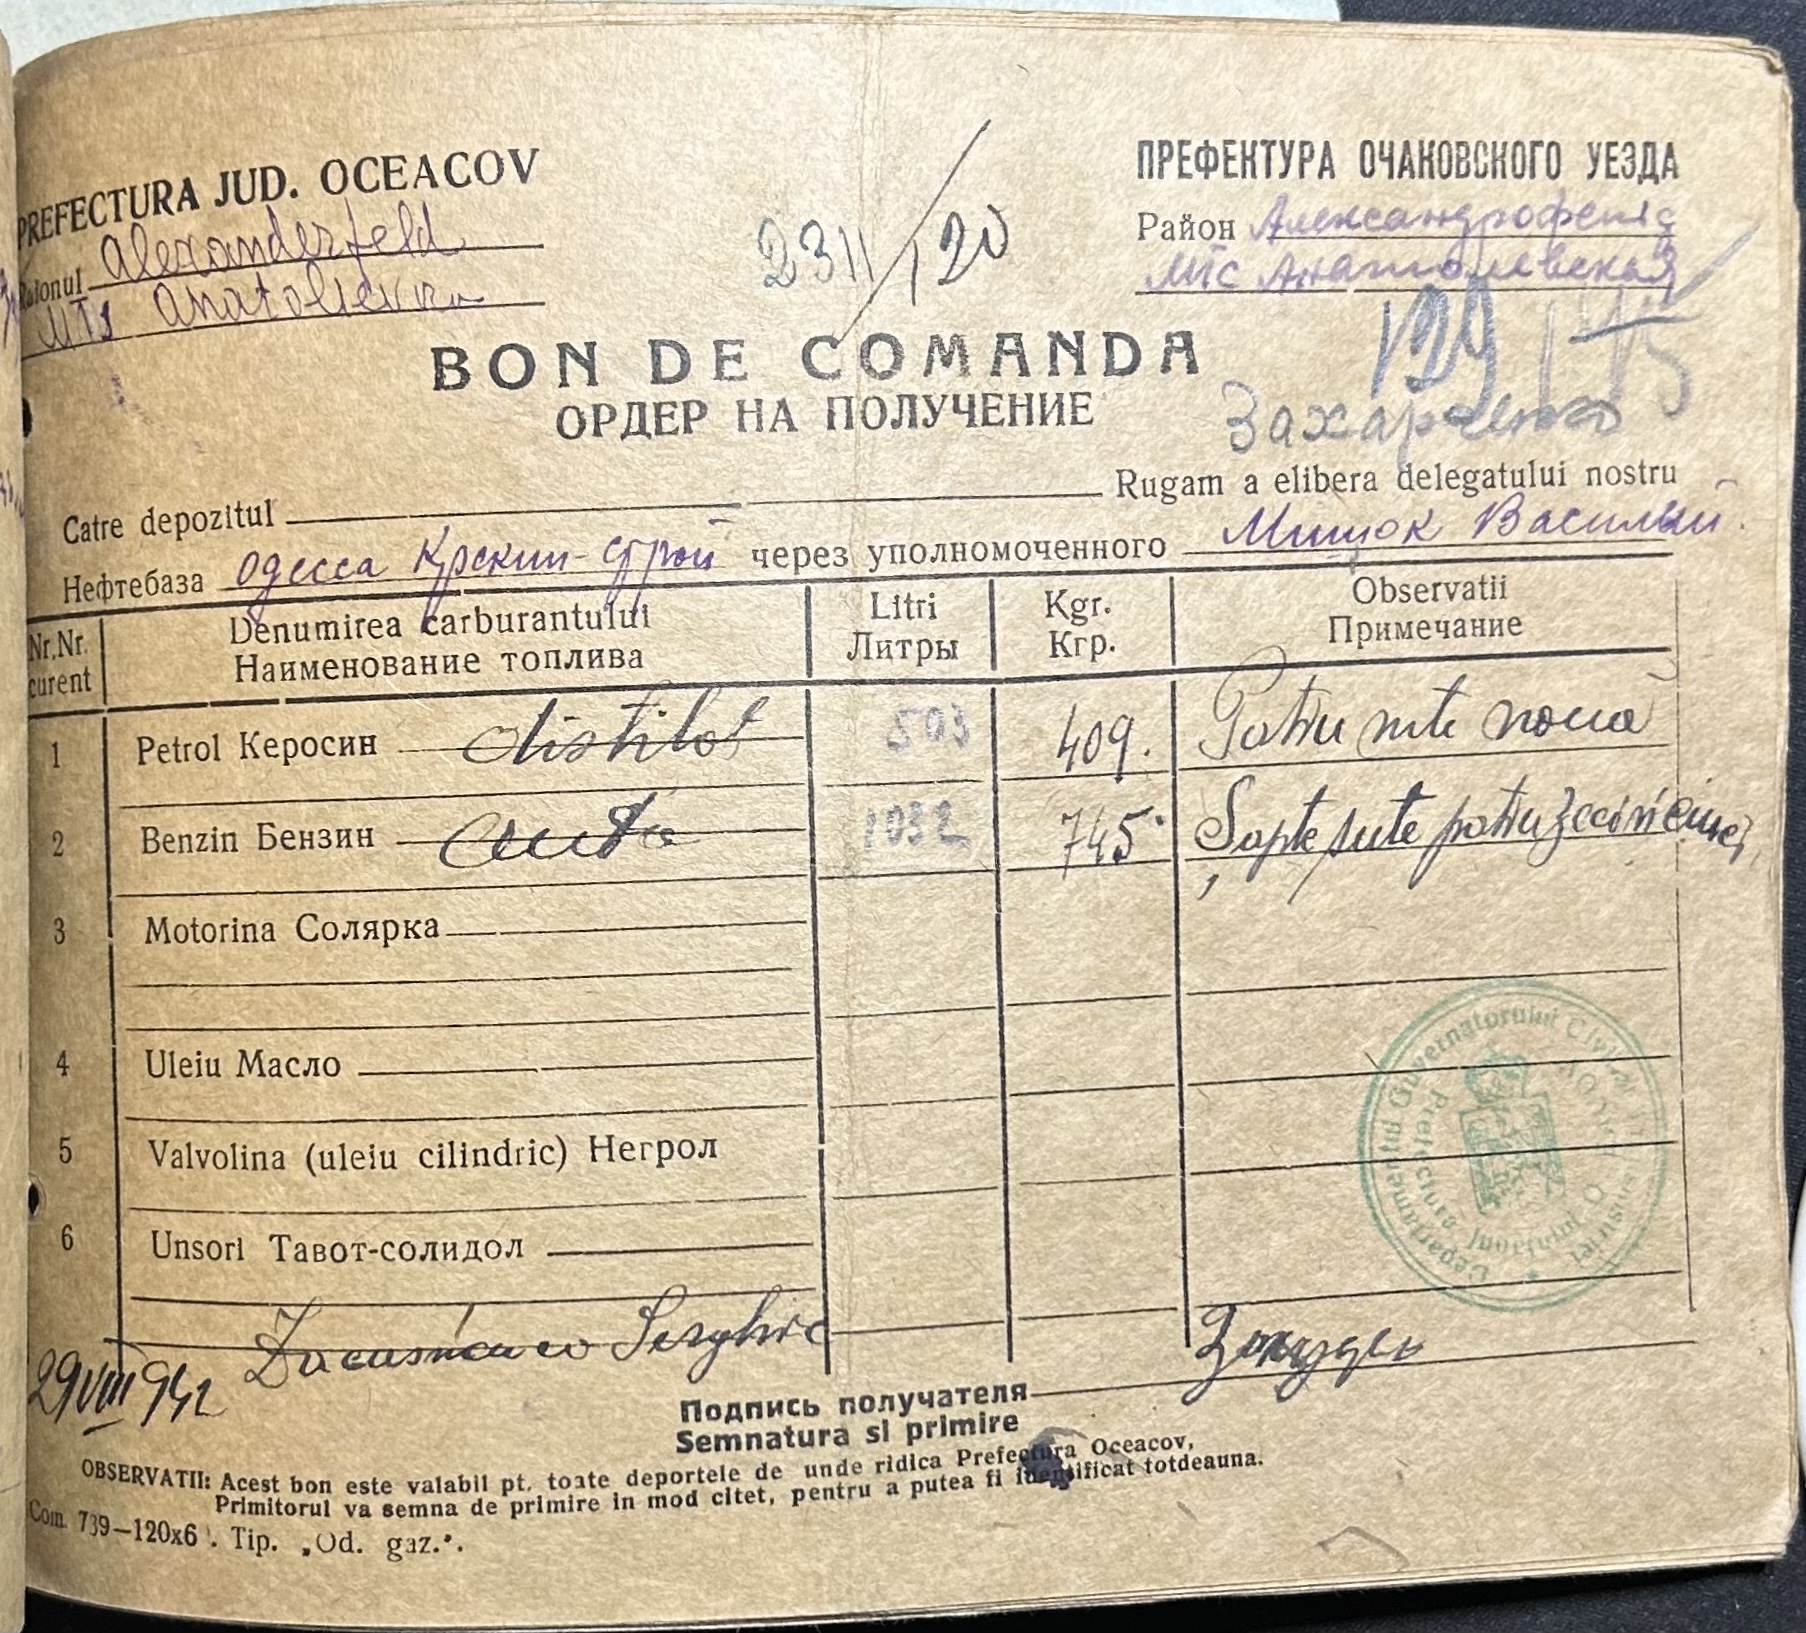 PREFECTURA JUD. OCEACOV
Raionul Alexanderfeld
MTS Anatolievka
2311/120
ПРЕФЕКТУРА ОЧАКОВСКОГО УЕЗДА
Район Александрофельд
МТС Анатолевская
129
Захарченко
BON DE COMANDA
ОРДЕР НА ПОЛУЧЕНИЕ
Catre depozitul Rugam a elibera delegatului nostru
Нефтебаза Одесса через уполномоченного Мицюк Василий.
Nr.Nr. curent
Denumirea carburantului
Наименование топлива
Litri
Литры
Kgr.
Кгр.
Observatii
Примечание
1 Petrol Керосин distilat 503 409. Patru sute noua
2 Benzin Бензин auto 1032 745. Şapte sute patruzeci si cinci
3 Motorina Солярка
4 Uleiu Масло
5 Valvolina (uleiu cilindric) Негрол
6 Unsori Тавот-солидол
Guvernatorul Civil
Prefectura
Judetul
29 VIII 942 Serghie
Подпись получателя
Semnatura si primire
OBSERVATII: Acest bon este valabil pt. toate deportele de unde ridica Prefectura Oceacov,
Primitorul va semna de primire in mod citet, pentru a putea fi identificat totdeauna.
Com. 739—120x6 . Tip. „Od. gaz.".